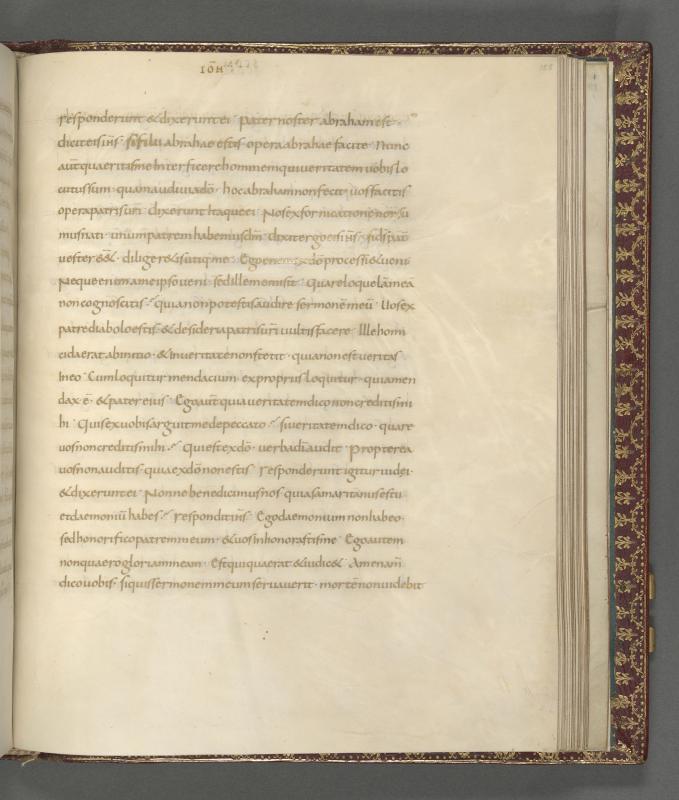 IOH̅
responderunt & dixerunt ei · pater noster abraham est ·
dicit eis ih̅s · si filii abrahae estis opera abrahae facite · Nunc
aut̅ quaeritis me interficere hominem qui ueritatem uobis lo
cutus sum · quam audiui a do̅ · hoc abraham non fecit · uos facitis
opera patris ur̅i · dixerunt itaque ei · Nos ex fornicatione non su
mus nati · unum patrem habemus dm̅ · dixit ergo eis ih̅s · si ds̅ pat̅
uester ess& · diliger&is utiq; me · Ego enim ex do̅ processi & ueni ·
Neque enim a me ipso ueni · sed ille me misit · Quare loquelā meā
non cognoscitis · quia non potestis audire sermonē meū · Uos ex
patre diabolo estis · & desideria patris ur̅i uultis facere · Ille homi
cida erat ab initio · & in ueritate non stetit · quia non est ueritas
in eo · Cum loquitur mendacium · ex propriis loquitur · quia men
dax ē · & pater eius · Ego aut̅ quia ueritatem dico non creditis mi
hi · Quis ex uobis arguit me de peccato · si ueritatem dico · quare
uos non creditis mihi · Qui est ex do̅ · uerba di̅ audit · Propterea
uos non auditis · quia ex do̅ non estis · responderunt igitur iudei ·
& dixerunt ei · Nonne bene dicimus nos · quia samaritanus es tu
et daemoniū habes · respondit ih̅s · Ego daemonium non habeo ·
sed honorifico patrem meum · & uos inhonorastis me · Ego autem
non quaero gloriam meam · Est qui quaerat & iudic& · Amen am̅
dico uobis · si quis sermonem meum seruauerit · mortē non uidebit